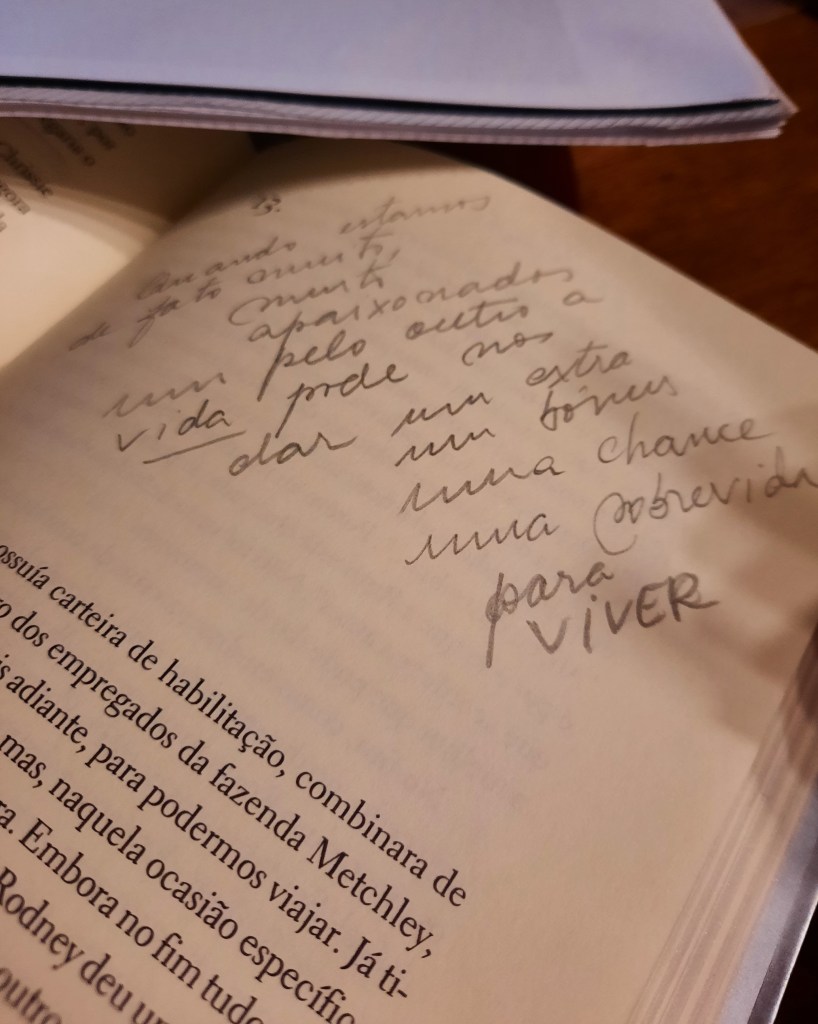 que
Classic
agora
13.
Quando estamos
de fato muito,
muito
apaixonados
um pelo outro a
vida pode nos
dar um extra
um bônus
uma chance
uma sobrevida
para
VIVER
ossuía carteira de habilitação, combinara de
o dos empregados da fazenda Metchley,
is adiante, para podermos viajar. Já ti-
mas, naquela ocasião específic
ra. Embora no fim tudo
Rodney deu u
outro